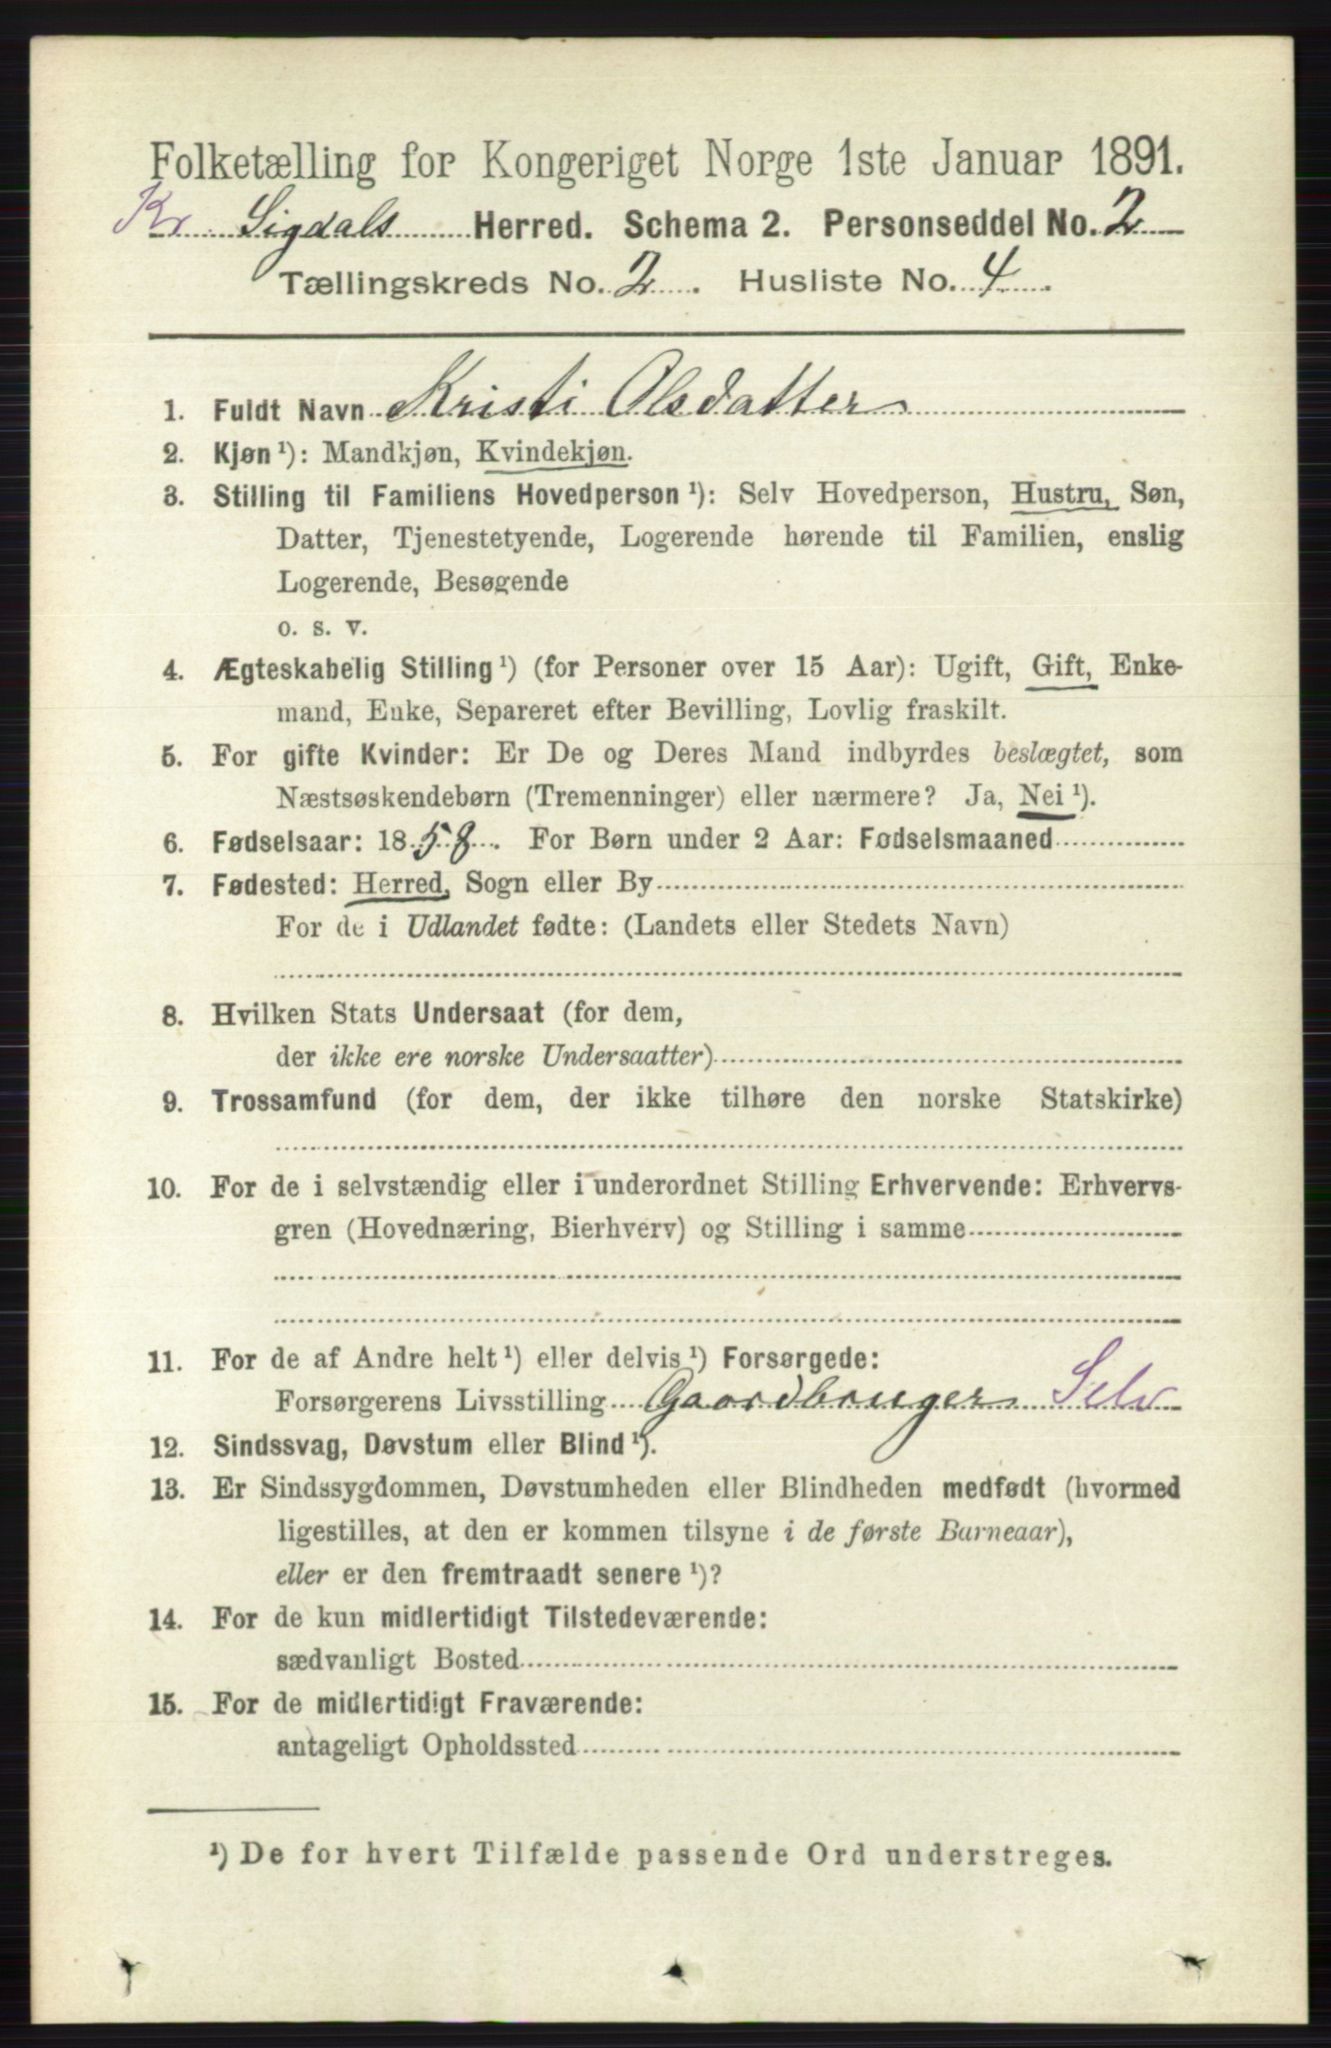 Folketælling for Kongeriget Norge 1ste Januar 1891.
Kr. Sigdals Herred. Schema 2. Personseddel No. 2
Tællingskreds No. 2. Husliste No. 4.
1. Fuldt Navn Kristi Olsdatter
2. Kjøn ¹): Mandkjøn, Kvindekjøn.
3. Stilling til Familiens Hovedperson ¹): Selv Hovedperson, Hustru, Søn,
Datter, Tjenestetyende, Logerende hørende til Familien, enslig
Logerende, Besøgende
o. s. v.
4. Ægteskabelig Stilling ¹) (for Personer over 15 Aar): Ugift, Gift, Enke-
mand, Enke, Separeret efter Bevilling, Lovlig fraskilt.
5. For gifte Kvinder: Er De og Deres Mand indbyrdes beslægtet, som
Næstsøskendebørn (Tremenninger) eller nærmere? Ja, Nei ¹).
6. Fødselsaar: 1858. For Børn under 2 Aar: Fødselsmaaned
7. Fødested: Herred, Sogn eller By
For de i Udlandet fødte: (Landets eller Stedets Navn)
8. Hvilken Stats Undersaat (for dem,
der ikke ere norske Undersaatter)
9. Trossamfund (for dem, der ikke tilhøre den norske Statskirke)
10. For de i selvstændig eller i underordnet Stilling Erhvervende: Erhvervs-
gren (Hovednæring, Bierhverv) og Stilling i samme
11. For de af Andre helt ¹) eller delvis ¹) Forsørgede:
Forsørgerens Livsstilling Gaardbruger Selv
12. Sindssvag, Døvstum eller Blind ¹).
13. Er Sindssygdommen, Døvstumheden eller Blindheden medfødt (hvormed
ligestilles, at den er kommen tilsyne i de første Barneaar),
eller er den fremtraadt senere ¹)?
14. For de kun midlertidigt Tilstedeværende:
sædvanligt Bosted
15. For de midlertidigt Fraværende:
antageligt Opholdssted
¹) De for hvert Tilfælde passende Ord understreges.